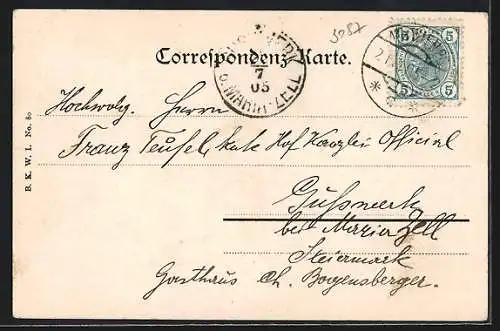 3087
Correspondenz-Karte.
7
05
MARIA-ZELL
5 5
5 5
B. K. W. I. No. 80
Hochwolg. Herrn
Franz Teufel, k. k. Hof Kanzlei Official
Gußwerk
bei Mariazell
Steiermark
Gasthaus Ch. Bogensberger.